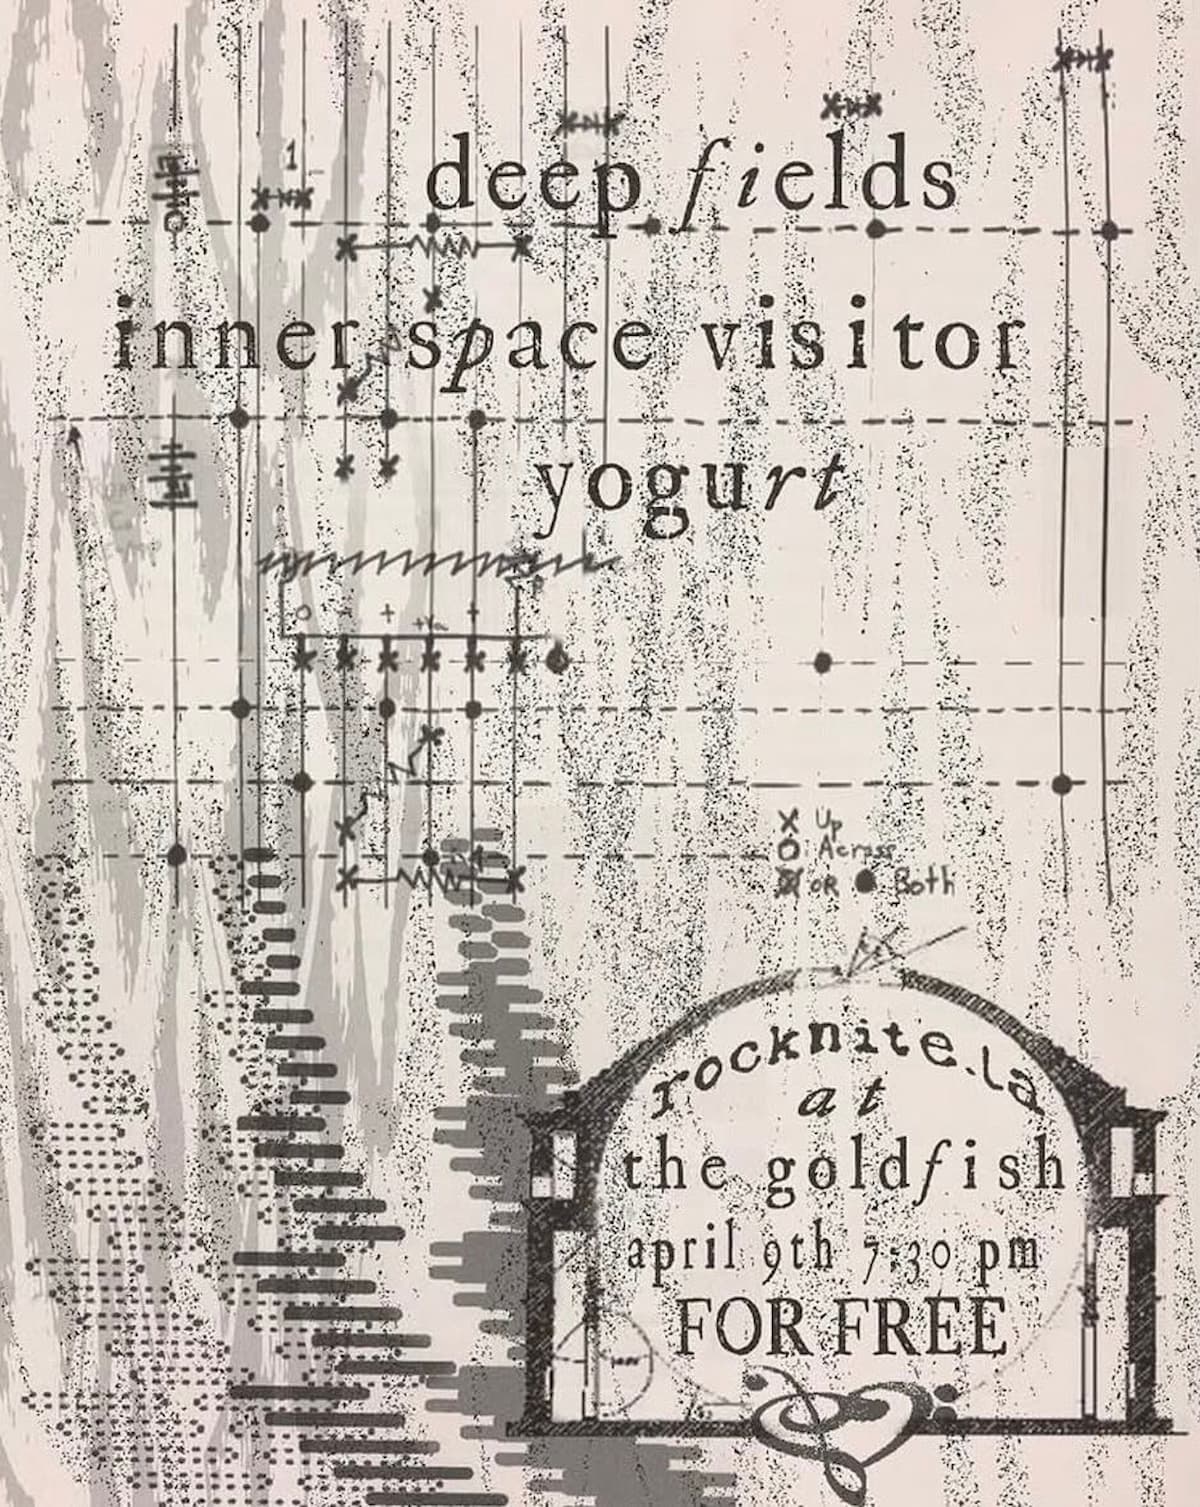 1
deep fields
inner space visitor
yogurt
X Up
O: Across
OR ● Both
rocknite.la
at
the goldfish
april 9th 7:30 pm
FOR FREE